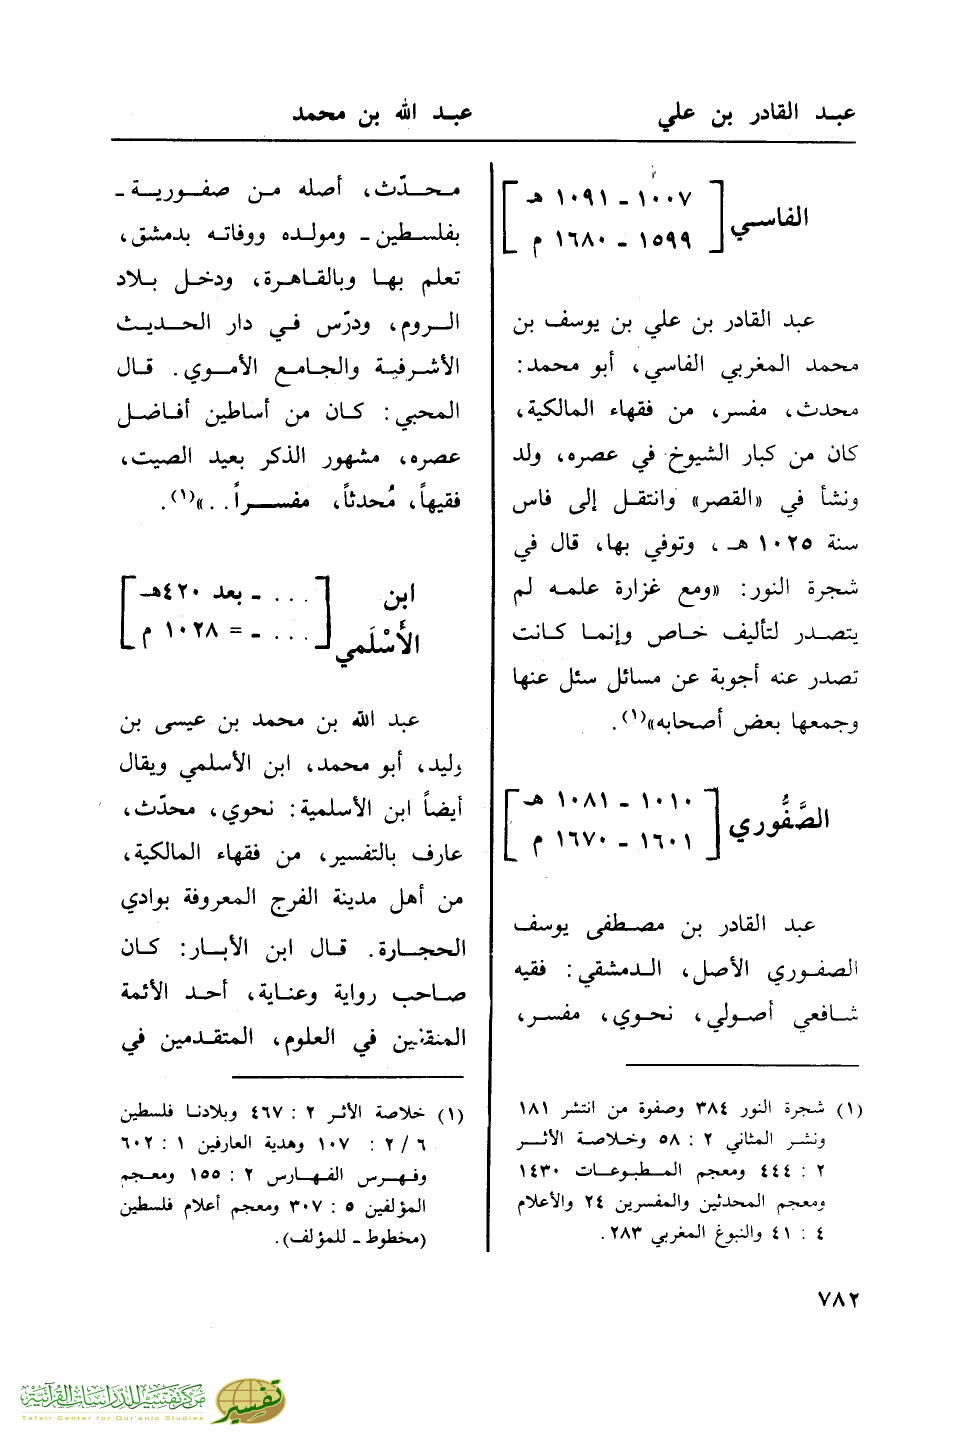 عبد القادر بن علي
عبد الله بن محمد
الفاسي [ ١٠٠٧ - ١٠٩١ هـ
١٥٩٩ - ١٦٨٠ م ]
عبد القادر بن علي بن يوسف بن
محمد المغربي الفاسي، أبو محمد:
محدث، مفسر، من فقهاء المالكية،
كان من كبار الشيوخ في عصره، ولد
ونشأ في «القصر» وانتقل إلى فاس
سنة ١٠٢٥ هـ، وتوفي بها، قال في
شجرة النور: «ومع غزارة علمه لم
يتصدر لتأليف خاص وإنما كانت
تصدر عنه أجوبة عن مسائل سئل عنها
وجمعها بعض أصحابه»(١).
الصَّفُّوري [ ١٠١٠ - ١٠٨١ هـ
١٦٠١ - ١٦٧٠ م ]
عبد القادر بن مصطفى يوسف
الصفوري الأصل، الدمشقي: فقيه
شافعي أصولي، نحوي، مفسر،
(١) شجرة النور ٣٨٤ وصفوة من انتشر ١٨١
ونشر المثاني ٢ : ٥٨ وخلاصة الأثر
٢ : ٤٤٤ ومعجم المطبوعات ١٤٣٠
ومعجم المحدثين والمفسرين ٢٤ والأعلام
٤ : ٤١ والنبوغ المغربي ٢٨٣.
محدّث، أصله من صفورية -
بفلسطين - ومولده ووفاته بدمشق،
تعلم بها وبالقاهرة، ودخل بلاد
الروم، ودرّس في دار الحديث
الأشرفية والجامع الأموي. قال
المحبي: كان من أساطين أفاضل
عصره، مشهور الذكر بعيد الصيت،
فقيهاً، مُحدثاً، مفسراً..»(١).
ابن [ ... - بعد ٤٢٠هـ
الأَسْلَمي ... - = ١٠٢٨ م ]
عبد الله بن محمد بن عيسى بن
وليد، أبو محمد، ابن الأسلمي ويقال
أيضاً ابن الأسلمية: نحوي، محدّث،
عارف بالتفسير، من فقهاء المالكية،
من أهل مدينة الفرج المعروفة بوادي
الحجارة. قال ابن الأبار: كان
صاحب رواية وعناية، أحد الأئمة
المنقنين في العلوم، المتقدمين في
(١) خلاصة الأثر ٢ : ٤٦٧ وبلادنا فلسطين
٦ / ٢ : ١٠٧ وهدية العارفين ١ : ٦٠٢
وفهرس الفهارس ٢ : ١٥٥ ومعجم
المؤلفين ٥ : ٣٠٧ ومعجم أعلام فلسطين
(مخطوط - للمؤلف).
٧٨٢
مركز تفسير للدراسات القرآنية
Tafsir Center for Qur'anic Studies
تفسير